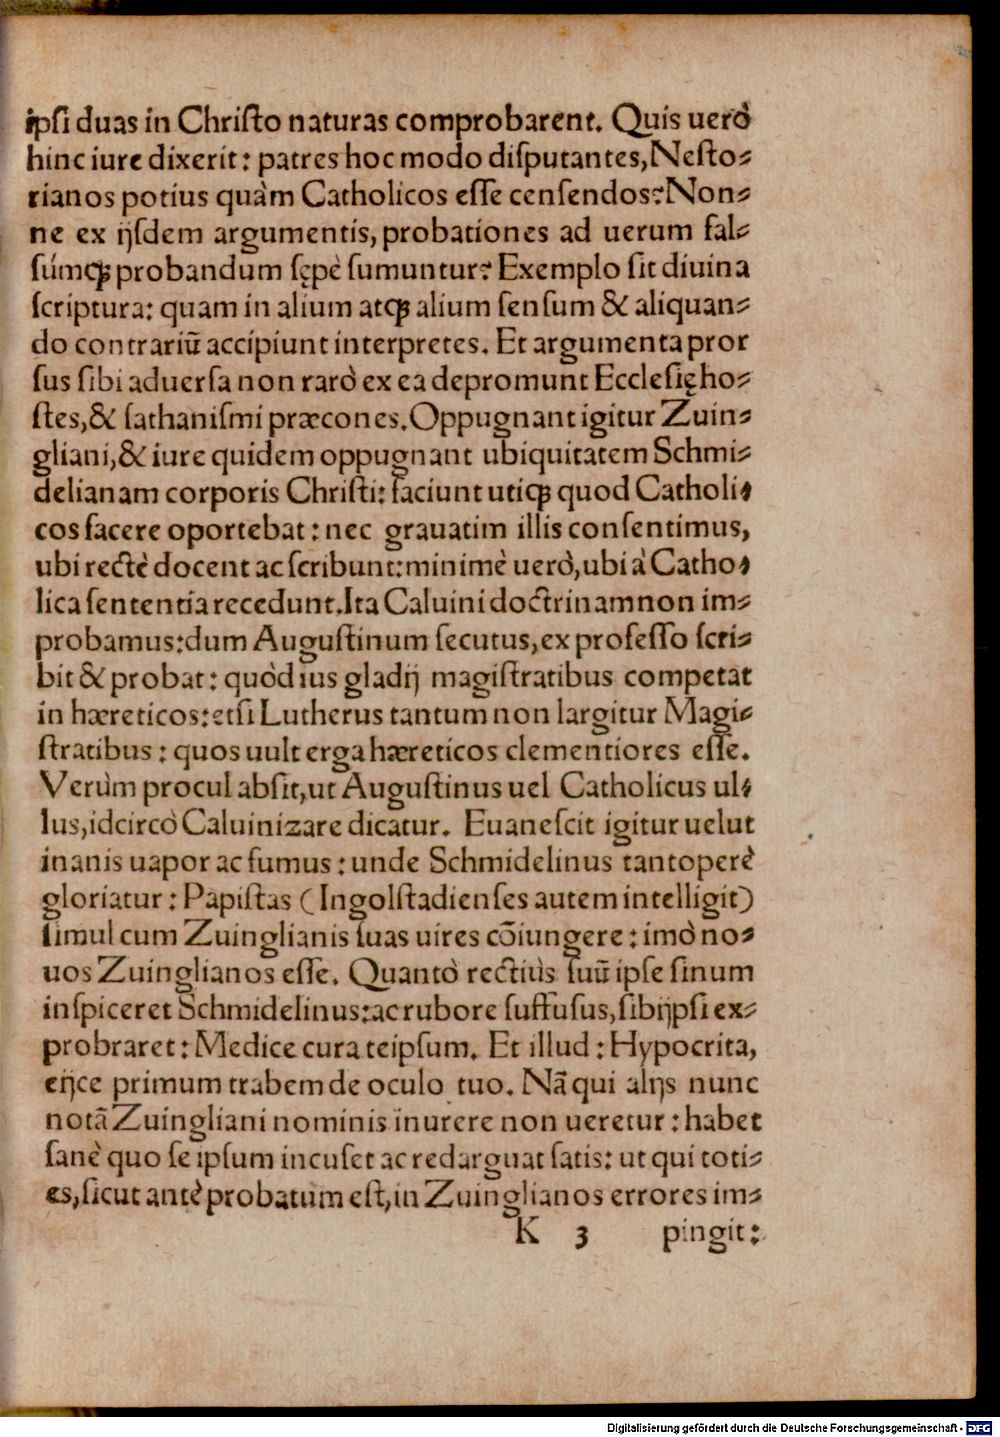 ipſi duas in Chriſto naturas comprobarent. Quis uerò
hinc iure dixerit: patres hoc modo diſputantes, Neſto⸗
rianos potius quàm Catholicos eſſe cenſendos? Non⸗
ne ex ijſdem argumentis, probationes ad uerum fal⸗
ſúmq́ꝫ probandum ſępè ſumuntur? Exemplo ſit diuina
ſcriptura: quam in alium atqꝫ alium ſenſum & aliquan⸗
do contrariū accipiunt interpretes. Et argumenta pror
ſus ſibi aduerſa non rarò ex ea depromunt Eccleſię ho⸗
ſtes, & ſathaniſmi præcones. Oppugnant igitur Zuin⸗
gliani, & iure quidem oppugnant ubiquitatem Schmi⸗
delianam corporis Chriſti: faciunt utiqꝫ quod Catholi⸗
cos facere oportebat: nec grauatim illis conſentimus,
ubi rectè docent ac ſcribunt: minimè uerò, ubi à Catho⸗
lica ſententia recedunt. Ita Caluini doctrinam non im⸗
probamus: dum Auguſtinum ſecutus, ex profeſſo ſcri⸗
bit & probat: quòd ius gladij magiſtratibus competat
in hæreticos: etſi Lutherus tantum non largitur Magi⸗
ſtratibus: quos uult erga hæreticos clementiores eſſe.
Verùm procul abſit, ut Auguſtinus uel Catholicus ul⸗
lus, idcircò Caluinizare dicatur. Euaneſcit igitur uelut
inanis uapor ac fumus: unde Schmidelinus tantoperè
gloriatur: Papiſtas (Ingolſtadienſes autem intelligit)
ſimul cum Zuinglianis ſuas uires cōiungere: imò no⸗
uos Zuinglianos eſſe. Quantò rectiùs ſuū ipſe ſinum
inſpiceret Schmidelinus: ac rubore ſuffuſus, ſibijpſi ex⸗
probraret: Medice cura teipſum. Et illud: Hypocrita,
eijce primum trabem de oculo tuo. Nā qui alijs nunc
notā Zuingliani nominis inurere non ueretur: habet
ſanè quo ſe ipſum incuſet ac redarguat ſatis: ut qui toti⸗
es, ſicut antè probatum eſt, in Zuinglianos errores im⸗
K 3 pingit:
Digitalisierung gefördert durch die Deutsche Forschungsgemeinschaft - DFG